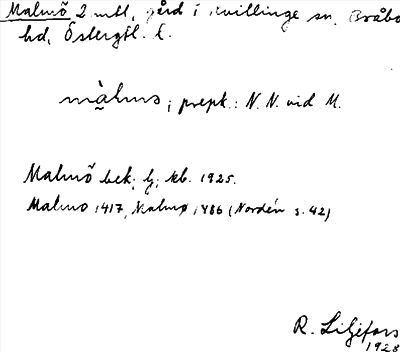 Malmö 2 mtl, gård i Kvillinge sn, Bråbo
hd, Östergtl. l.
màlmo; prepk.: N. N. vid M.
Malmö bek; lj; kb. 1925.
Malmo 1417, Malmø 1486 (Nordén s. 42)
R. Liljefors
1928